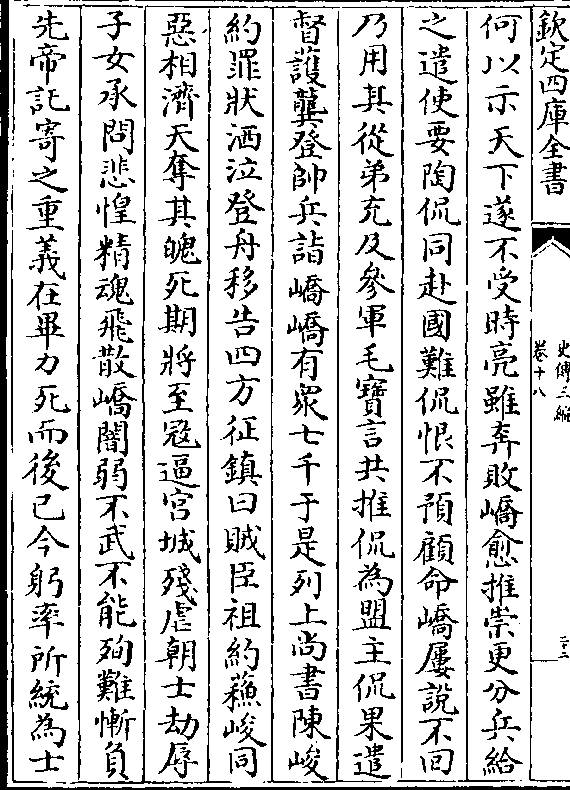 欽定四庫全書
史傳三編
卷十八
二十二
何以示天下遂不受時亮雖奔敗嶠愈推崇更分兵給
之遣使要陶侃同赴國難侃恨不預顧命嶠屢說不回
乃用其從弟充及參軍毛寶言共推侃為盟主侃果遣
督護龔登帥兵詣嶠嶠有眾七千于是列上尚書陳峻
約罪狀洒泣登舟移告四方征鎮曰賊臣祖約蘓峻同
惡相濟天奪其魄死期將至冦逼宮城殘虐朝士劫辱
子女承問悲惶精魂飛散嶠闇弱不武不能殉難慚負
先帝託寄之重義在畢力死而後已今躬率所統為士